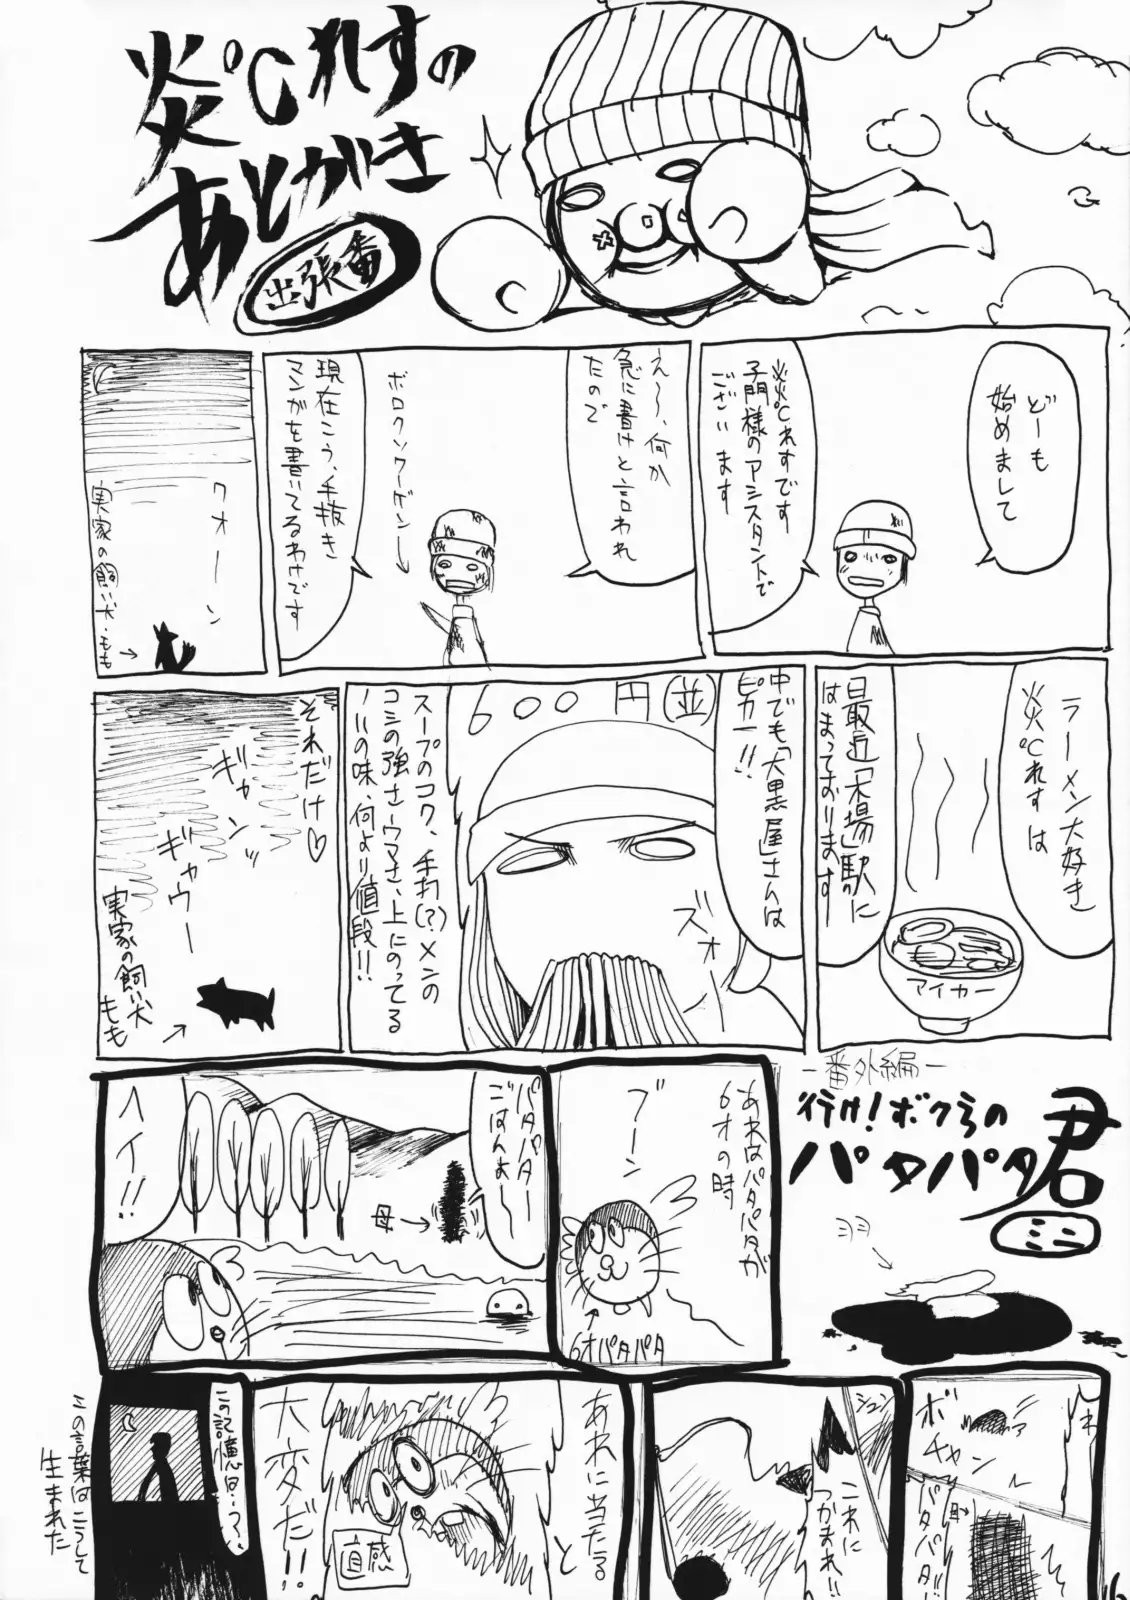 炎℃れすの
あとがき
出張番
どーも
始めまして
炎℃れすです
子門様のアシスタントで
ございます
え〜、何か
急に書けと言われ
たので
ボロクソワーゲン
現在こう、手抜き
マンガを書いてるわけです
クオーン
実家の飼い犬・もも
ラーメン大好き
炎℃れすは
最近「木場」駅に
はまっております
アイカー
中でも「大黒屋」さんは
ピカー!!
600円(並)
ズオー
スープのコク、手打(?)メンの
コシの強さ・ウマさ、上にのってる
ノリの味、何より値段!!
それだけ♡
ギャンッ
ギャウー
実家の飼い犬
もも
-番外編-
行け!ボクらの
パタパタ君
ミニ
ヨヨ
あれはパタパタが
6才の時
ブーン
6才パタパタ
パタパター
ごはんよ〜
母→
ヘイ!!
ボチャン
パタパタ!!
母
これに
つかまれ!!
あれに当たる。
と
大変だ!!
直感
この記憶は・・?
この言葉はこうして
生まれた